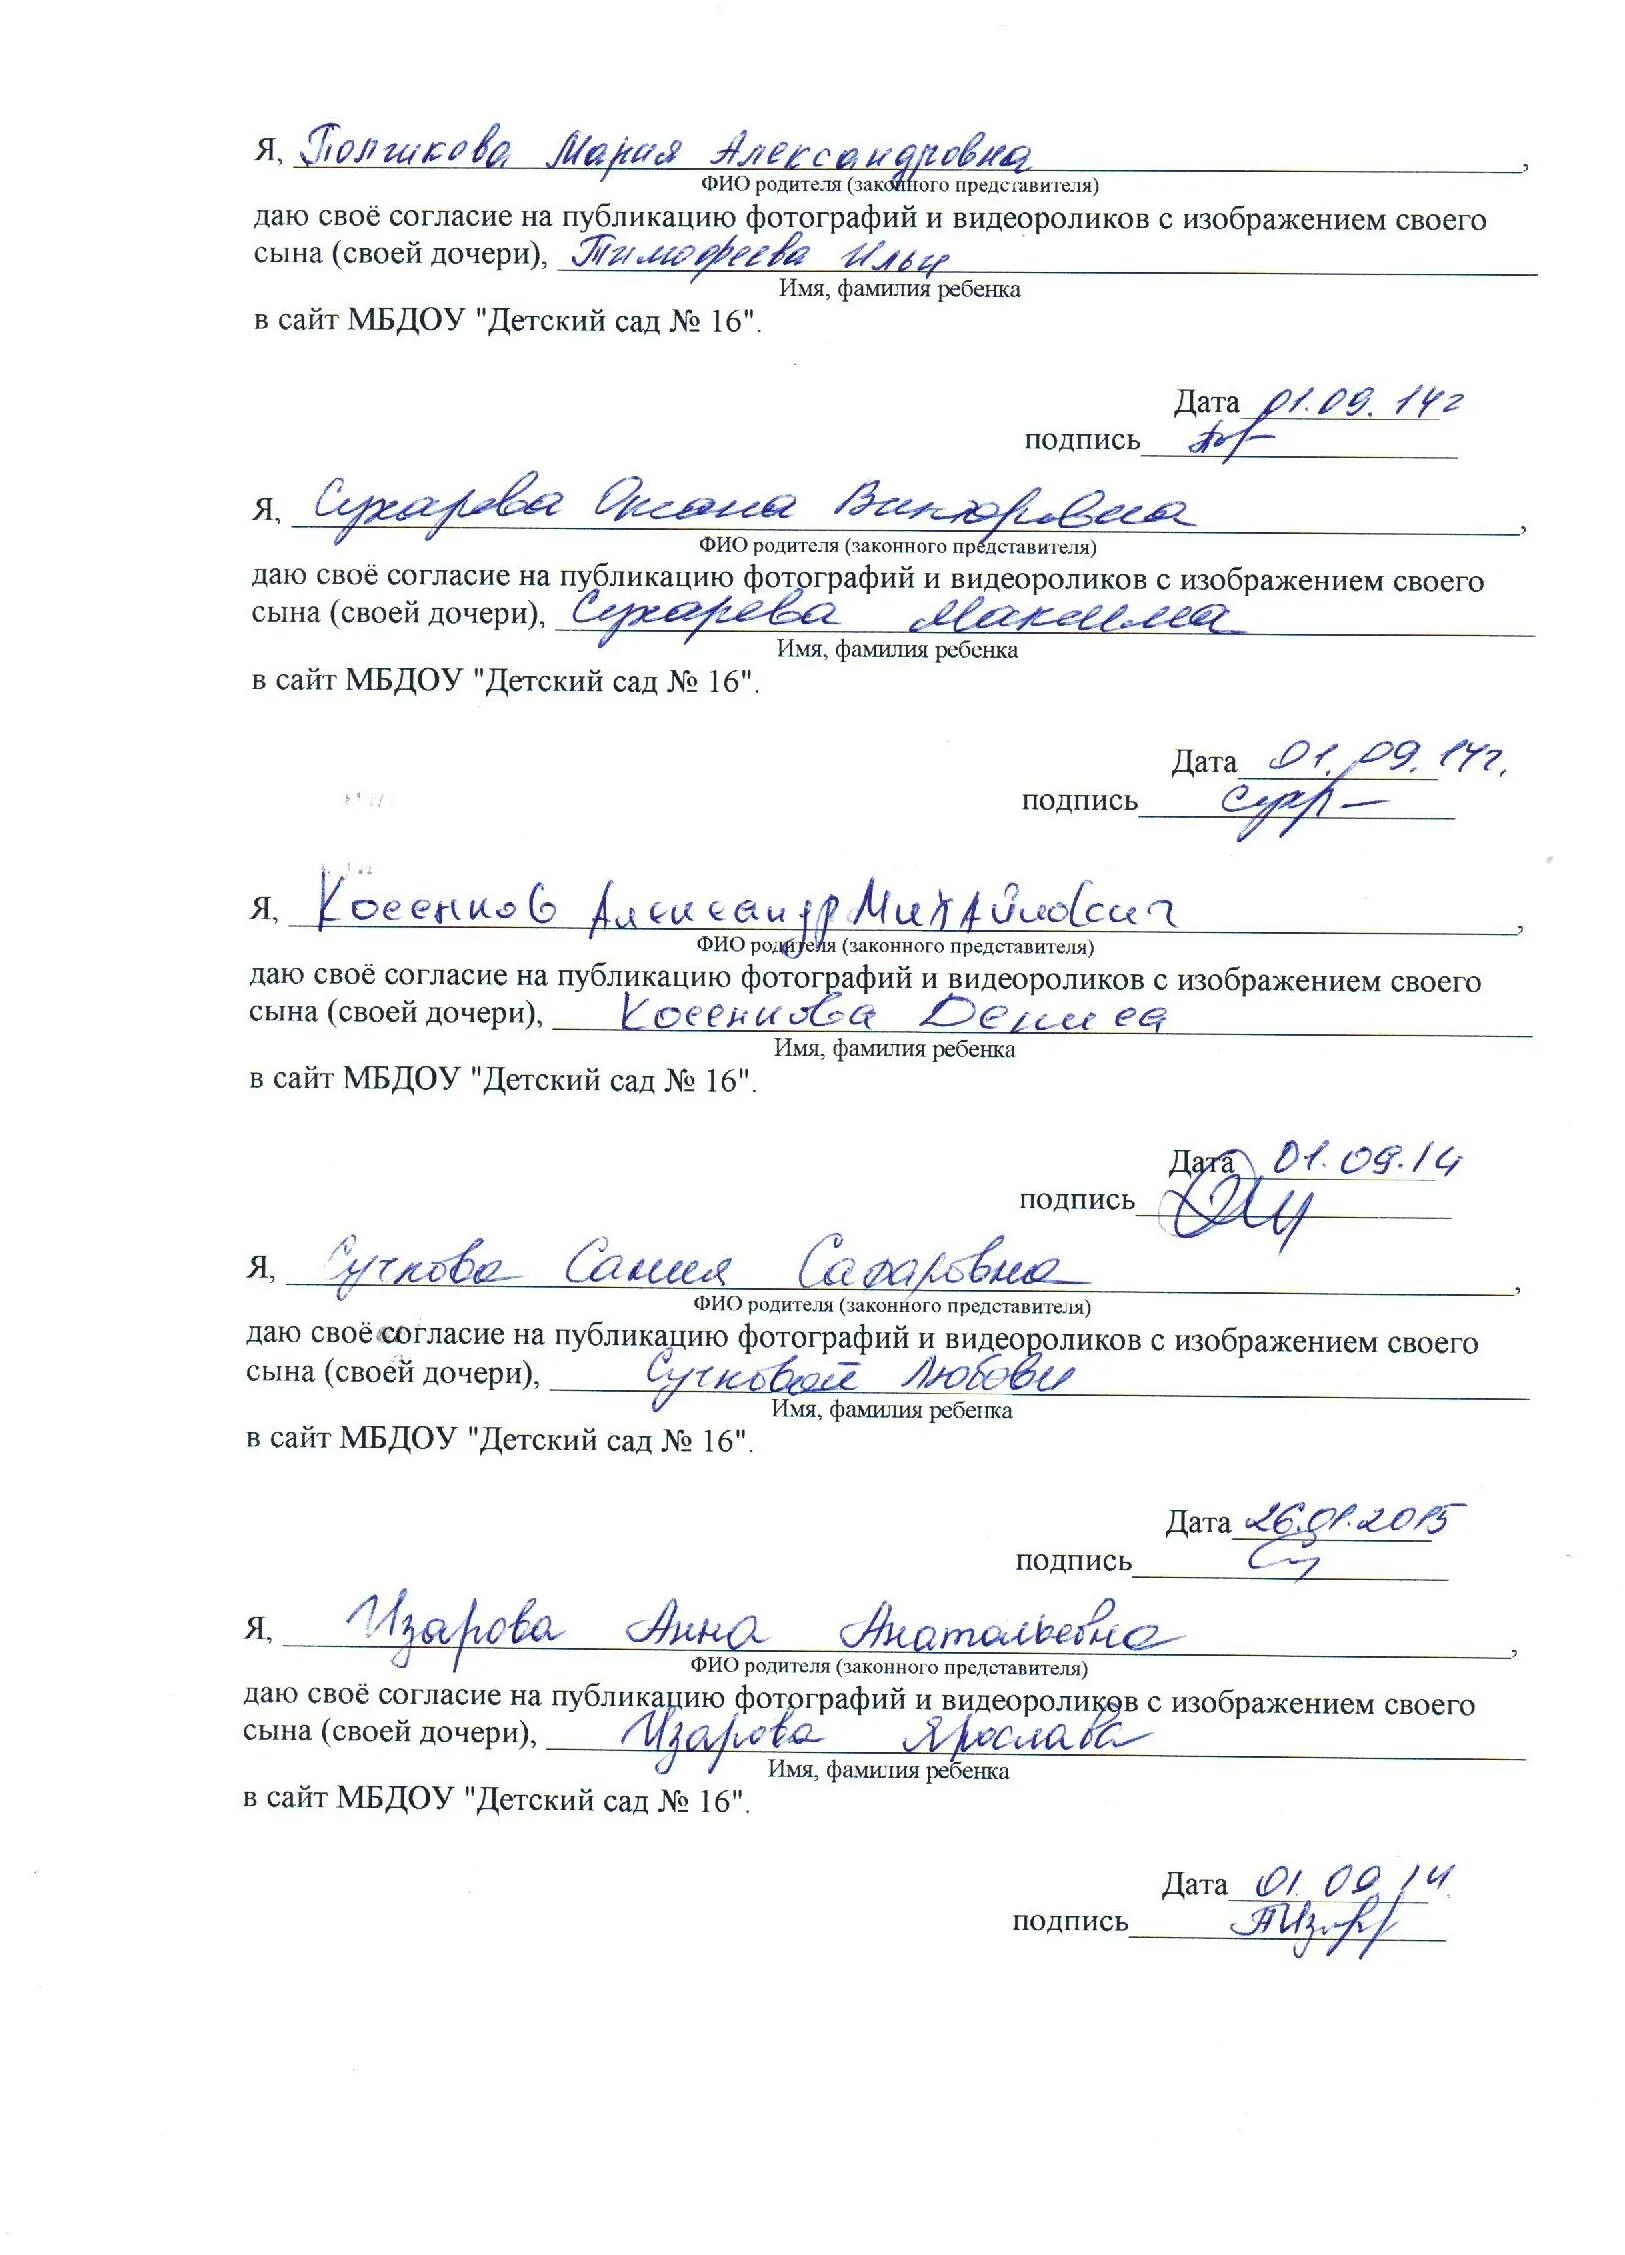 Я, Полчикова Мария Александровна,
ФИО родителя (законного представителя)
даю своё согласие на публикацию фотографий и видеороликов с изображением своего
сына (своей дочери), Тимофеева Ильи
Имя, фамилия ребенка
в сайт МБДОУ "Детский сад № 16".
Дата 01.09.14г
подпись
Я, Сухарева Оксана Викторовна,
ФИО родителя (законного представителя)
даю своё согласие на публикацию фотографий и видеороликов с изображением своего
сына (своей дочери), Сухарева Максима
Имя, фамилия ребенка
в сайт МБДОУ "Детский сад № 16".
Дата 01.09.14г.
подпись Сухр
Я, Косенков Александр Михайлович,
ФИО родителя (законного представителя)
даю своё согласие на публикацию фотографий и видеороликов с изображением своего
сына (своей дочери), Косенкова Дениса
Имя, фамилия ребенка
в сайт МБДОУ "Детский сад № 16".
Дата 01.09.14
подпись
Я, Сучкова Сания Сафаровна,
ФИО родителя (законного представителя)
даю своё согласие на публикацию фотографий и видеороликов с изображением своего
сына (своей дочери), Сучковой Любови
Имя, фамилия ребенка
в сайт МБДОУ "Детский сад № 16".
Дата 26.01.2015
подпись
Я, Изарова Анна Анатольевна,
ФИО родителя (законного представителя)
даю своё согласие на публикацию фотографий и видеороликов с изображением своего
сына (своей дочери), Изарова Ярослава
Имя, фамилия ребенка
в сайт МБДОУ "Детский сад № 16".
Дата 01.09.14
подпись